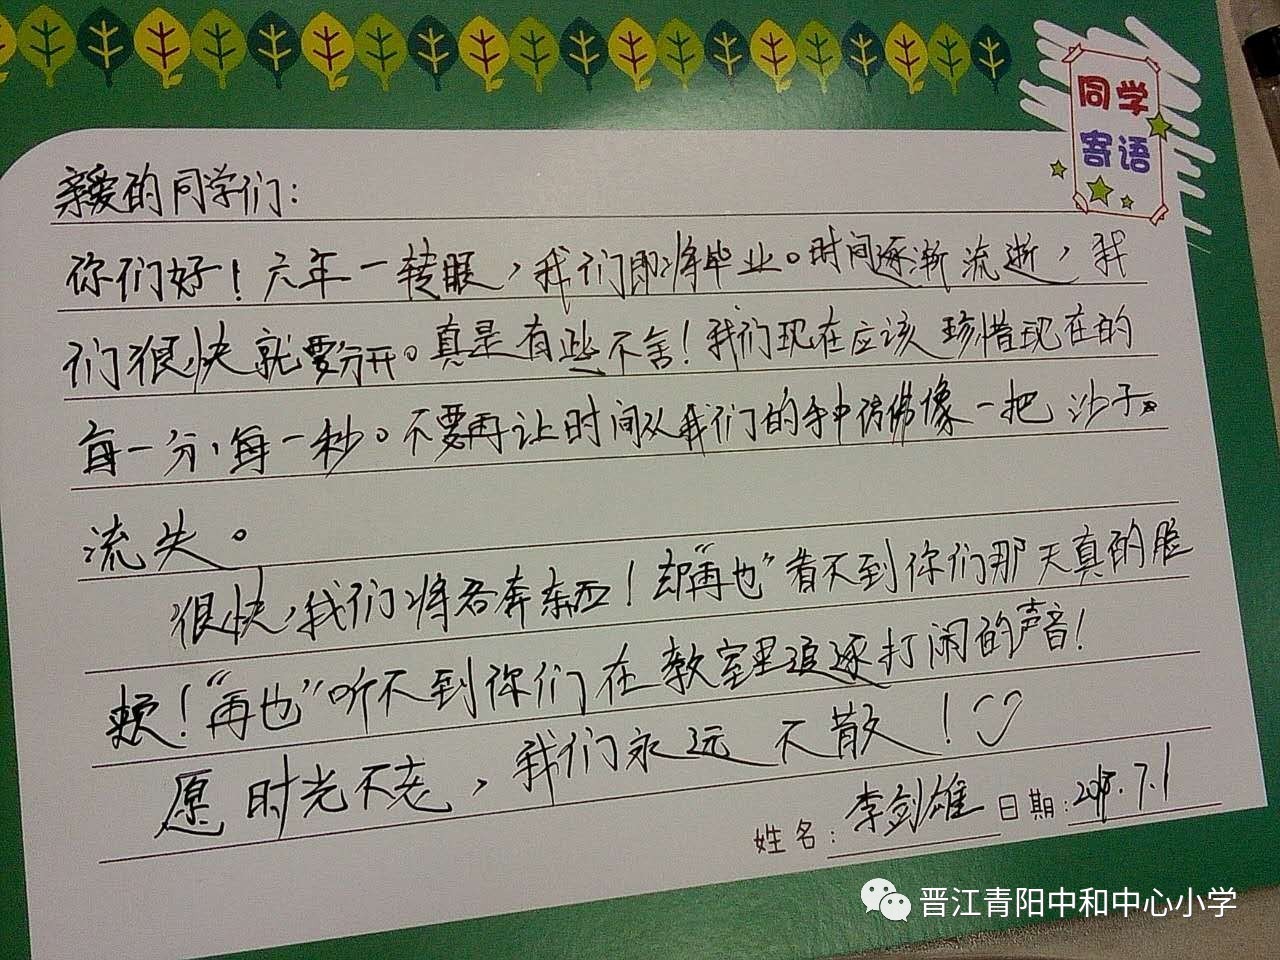 同学
寄语
亲爱的同学们：
你们好！六年一转眼，我们即将毕业。时间逐渐流逝，我
们很快就要分开。真是有些不舍！我们现在应该珍惜现在的
每一分，每一秒。不要再让时间从我们的手中仿佛像一把沙子
流失。
很快，我们将各奔东西！却“再也”看不到你们那天真的脸
颊！“再也”听不到你们在教室里追逐打闹的声音！
愿时光不老，我们永远不散！
姓名：李剑雄 日期：7.1
晋江青阳中和中心小学